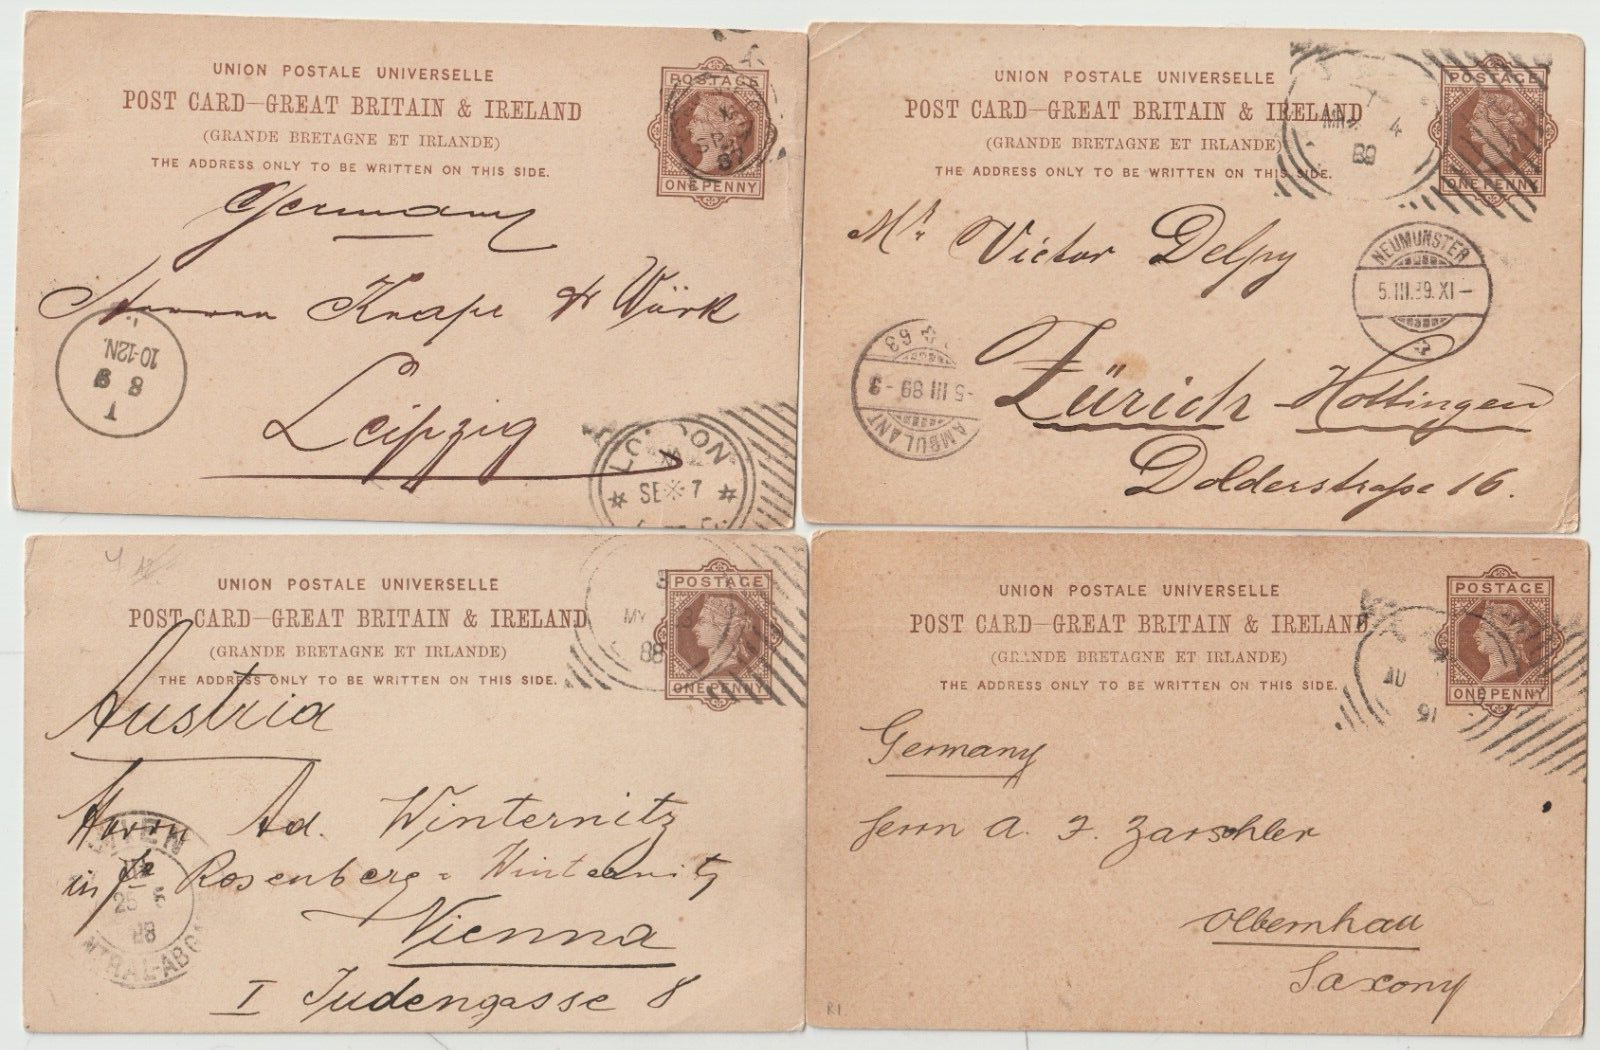 UNION POSTALE UNIVERSELLE
POST CARD—GREAT BRITAIN & IRELAND
(GRANDE BRETAGNE ET IRLANDE)
THE ADDRESS ONLY TO BE WRITTEN ON THIS SIDE.
POSTAGE
ONE PENNY
SP
87
Germany
Herrn Knape & Würk
Leipzig
T
8 9
10-12N.
LONDON
SE 7
UNION POSTALE UNIVERSELLE
POST CARD—GREAT BRITAIN & IRELAND
(GRANDE BRETAGNE ET IRLANDE)
THE ADDRESS ONLY TO BE WRITTEN ON THIS SIDE.
POSTAGE
ONE PENNY
4
89
Mr. Victor Delpy
Zürich Hottingen
Dolderstraße 16.
NEUMÜNSTER
5.III.89.XI-
AMBULANT
-5 III 89-3
63
UNION POSTALE UNIVERSELLE
POST CARD—GREAT BRITAIN & IRELAND
(GRANDE BRETAGNE ET IRLANDE)
THE ADDRESS ONLY TO BE WRITTEN ON THIS SIDE.
POSTAGE
ONE PENNY
MY
88
Austria
Herrn Ad. Winternitz
in Fa Rosenberg & Winternitz
Vienna
I Judengasse 8
WIEN
25 5
88
UNION POSTALE UNIVERSELLE
POST CARD—GREAT BRITAIN & IRELAND
(GRANDE BRETAGNE ET IRLANDE)
THE ADDRESS ONLY TO BE WRITTEN ON THIS SIDE.
POSTAGE
ONE PENNY
AU
91
Germany
Herrn A. F. Zarschler
Olbernhau
Saxony
R1